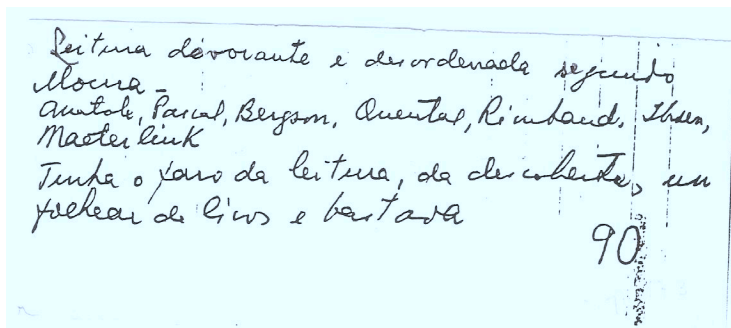 Leitura devorante e desordenada segundo
Moura -
Anatole, Pascal, Bergson, Quental, Rimbaud, Ibsen,
Maeterlink
Tinha o faro da leitura, da descoberta, um
folhear de livros e bastava
90